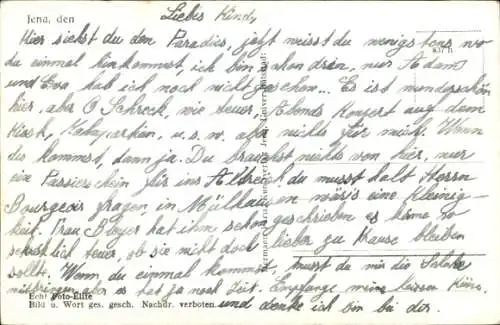 Jena, den
Liebes Kind,
Hier siehst du den Paradies, jetzt weisst du wenigstens wo
du einmal hinkommst, ich bin schon drin, nur Adam
und Eva hab ich noch nicht gesehen... Es ist wunderschön
hier, aber O Schreck, wie teuer. Abends Konzert auf dem
u. s. w. aber nichts für mich. Wenn
du kommst, dann ja. Du brauchst nichts von hier, nur
ein Passierschein für ins du musst halt Herrn
Bourgeois fragen, in Mülhausen wär's eine Kleinig-
keit. Frau Beyer hat ihm schon geschrieben es käme so
schrecklich teuer, ob sie nicht doch lieber zu Hause bleiben
sollt. Wenn du einmal kommst, musst du mir die
mitbringen aber es hat ja noch Zeit. Empfange meine
und denke ich bin bei dir.
Echt Foto-Elite
Bild u. Wort ges. gesch. Nachdr. verboten.